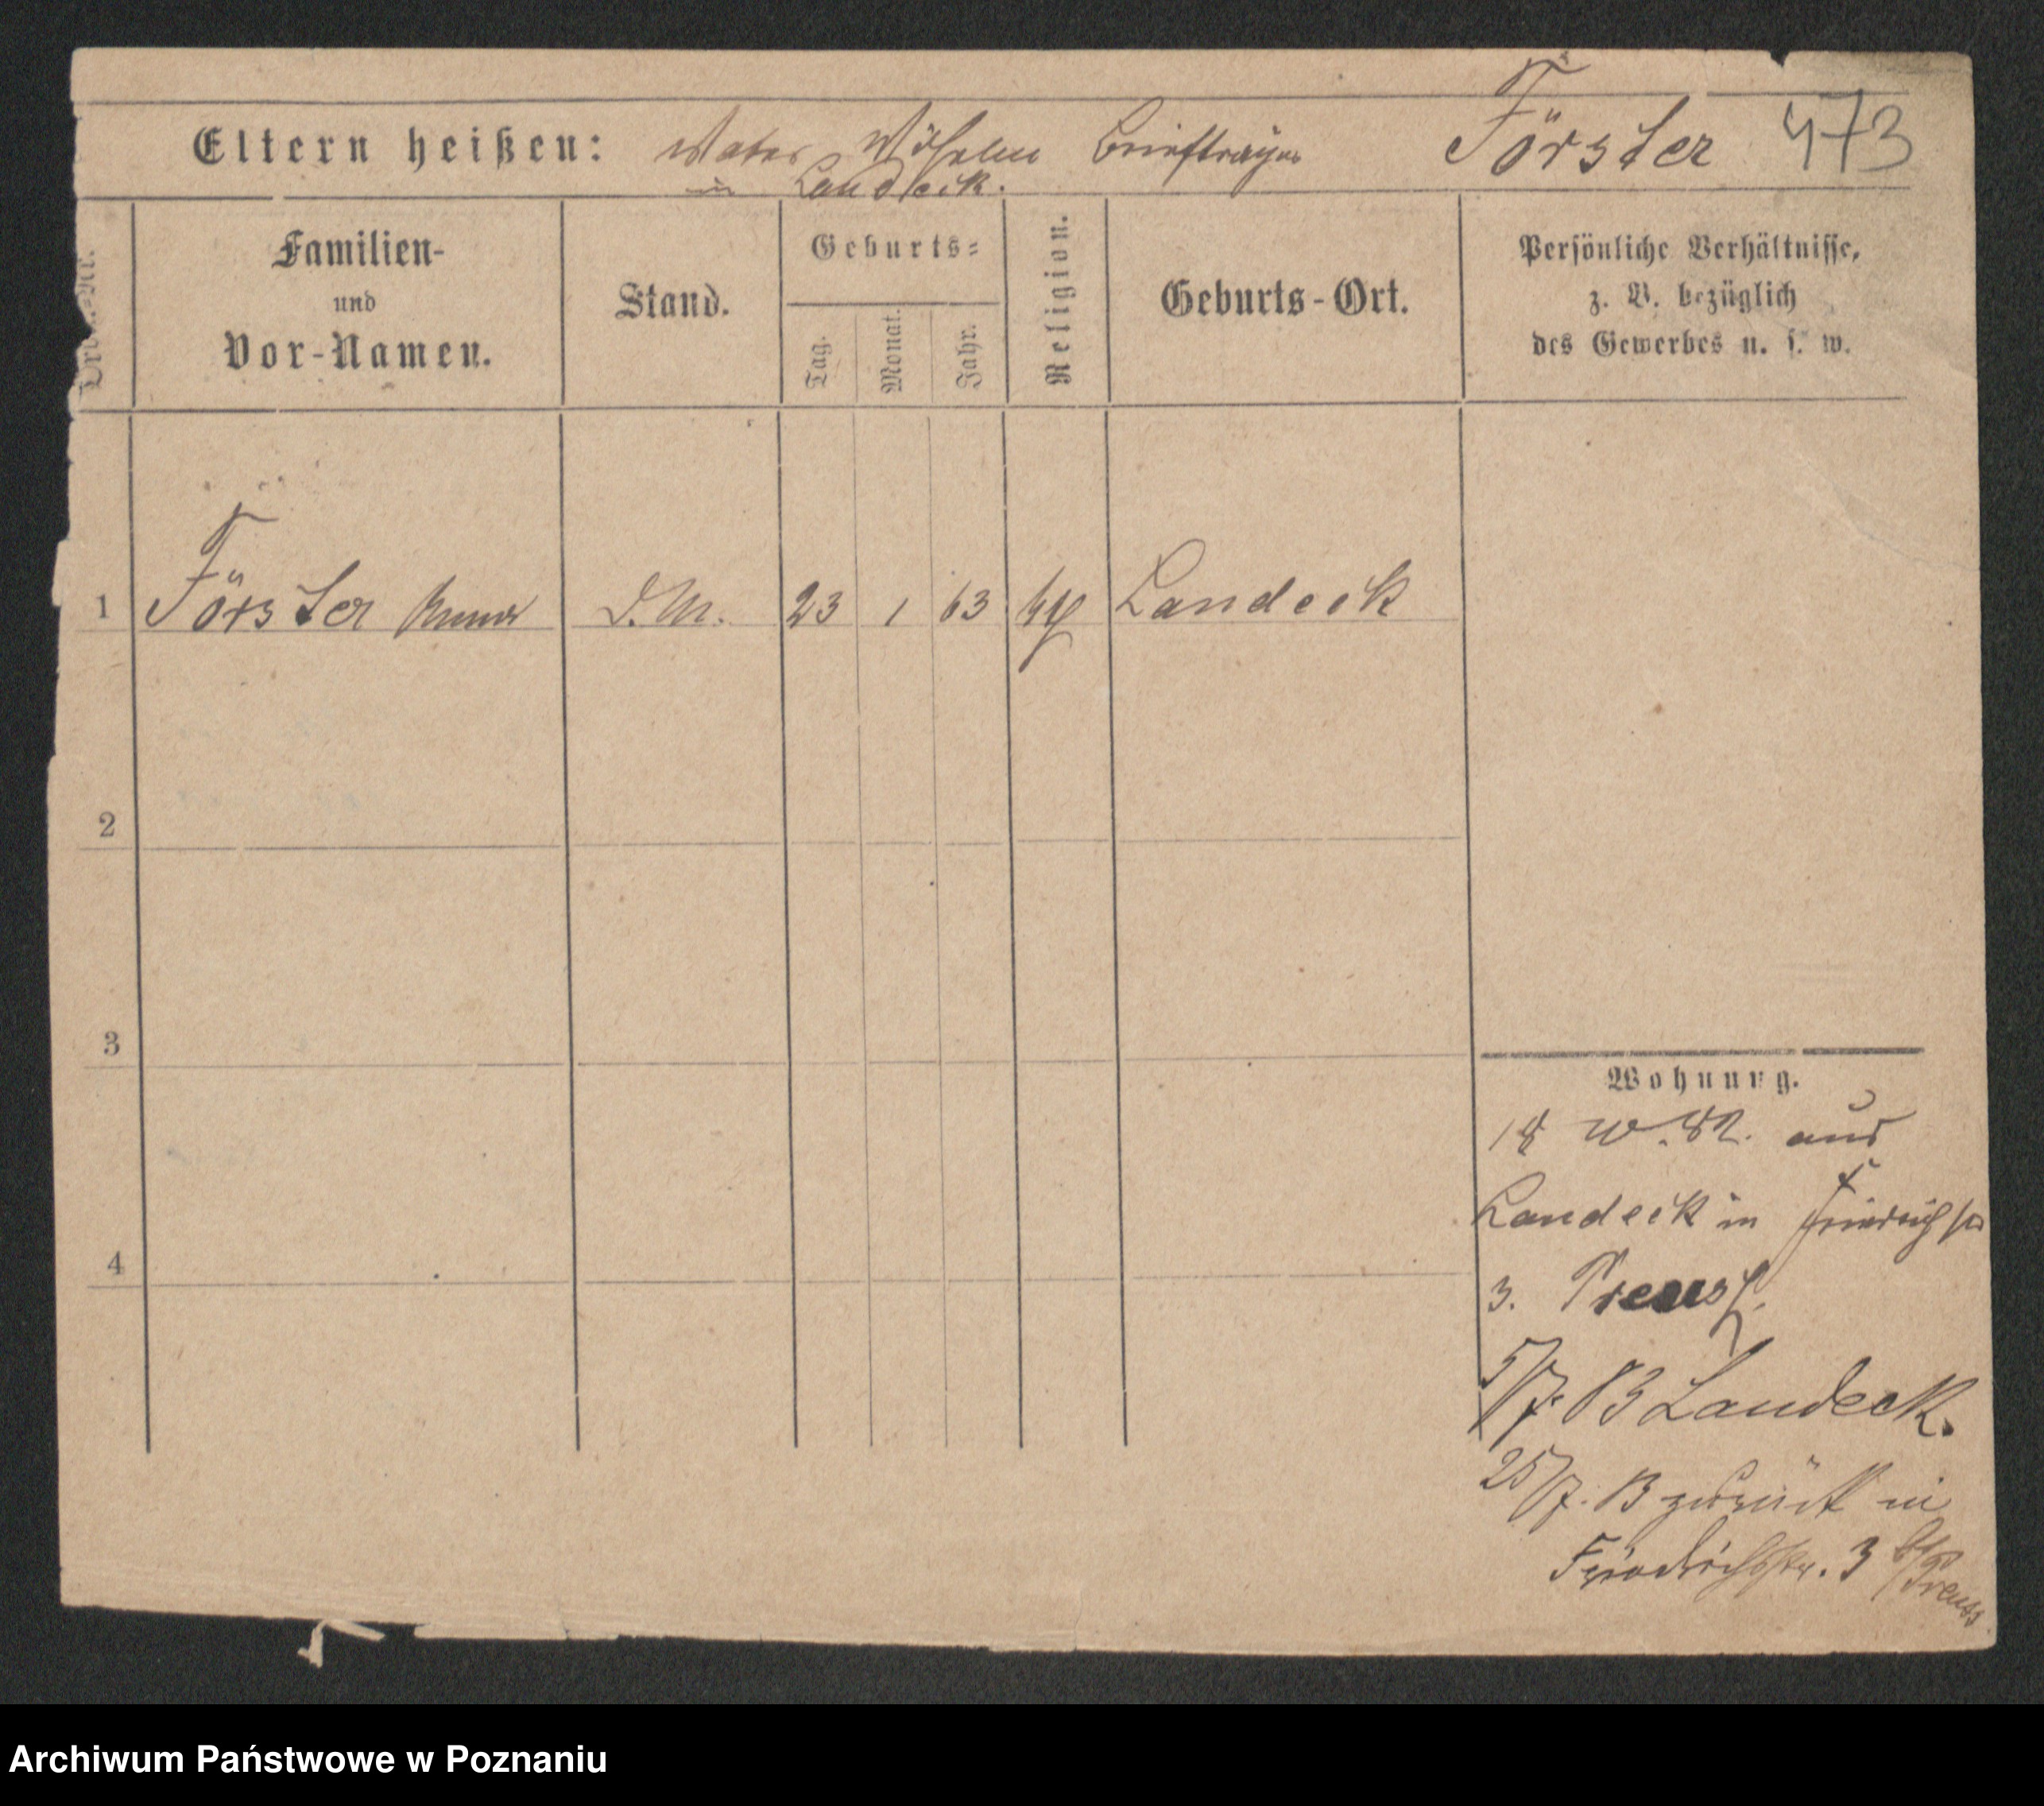 Förster 473
Eltern heißen: Vater Wilhelm Briefträger
in Landeck.
Ordn.-Nr.
Familien-
und
Vor-Namen.
Stand.
Geburts-
Tag. Monat. Jahr.
Religion.
Geburts-Ort.
Persönliche Verhältnisse,
z. B. bezüglich
des Gewerbes u. s. w.
1 Förster 23 1 63 Landeck
2
3
4
Wohnung.
aus
Landeck in
3. Preuss
5/7. 83 Landeck.
25/7. 83 zurück in
Friedrichstr. 3 b/ Preuss